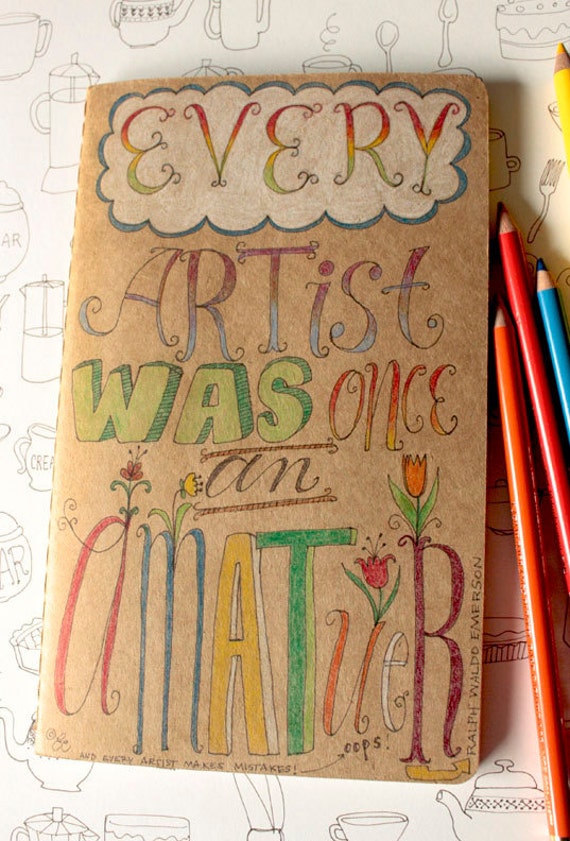 EVERY
ARTist
WAS ONCE
an
AMATueR
RALPH WALDO EMERSON
OOPS!
AND EVERY ARTIST MAKES MISTAKES!
CREA